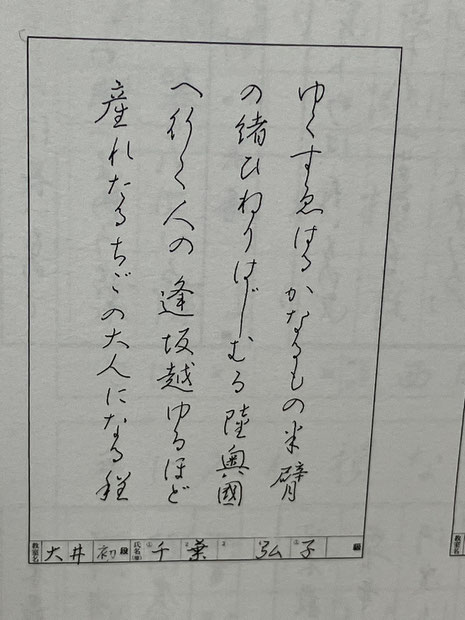 ゆくすゑはるかなるもの 半臂
の緒ひねりはじむる 陸奥國
へ行く人の 逢坂越ゆるほど
産れたるちごの大人になる程
教室名 大井 初段 氏名 千葉 弘子